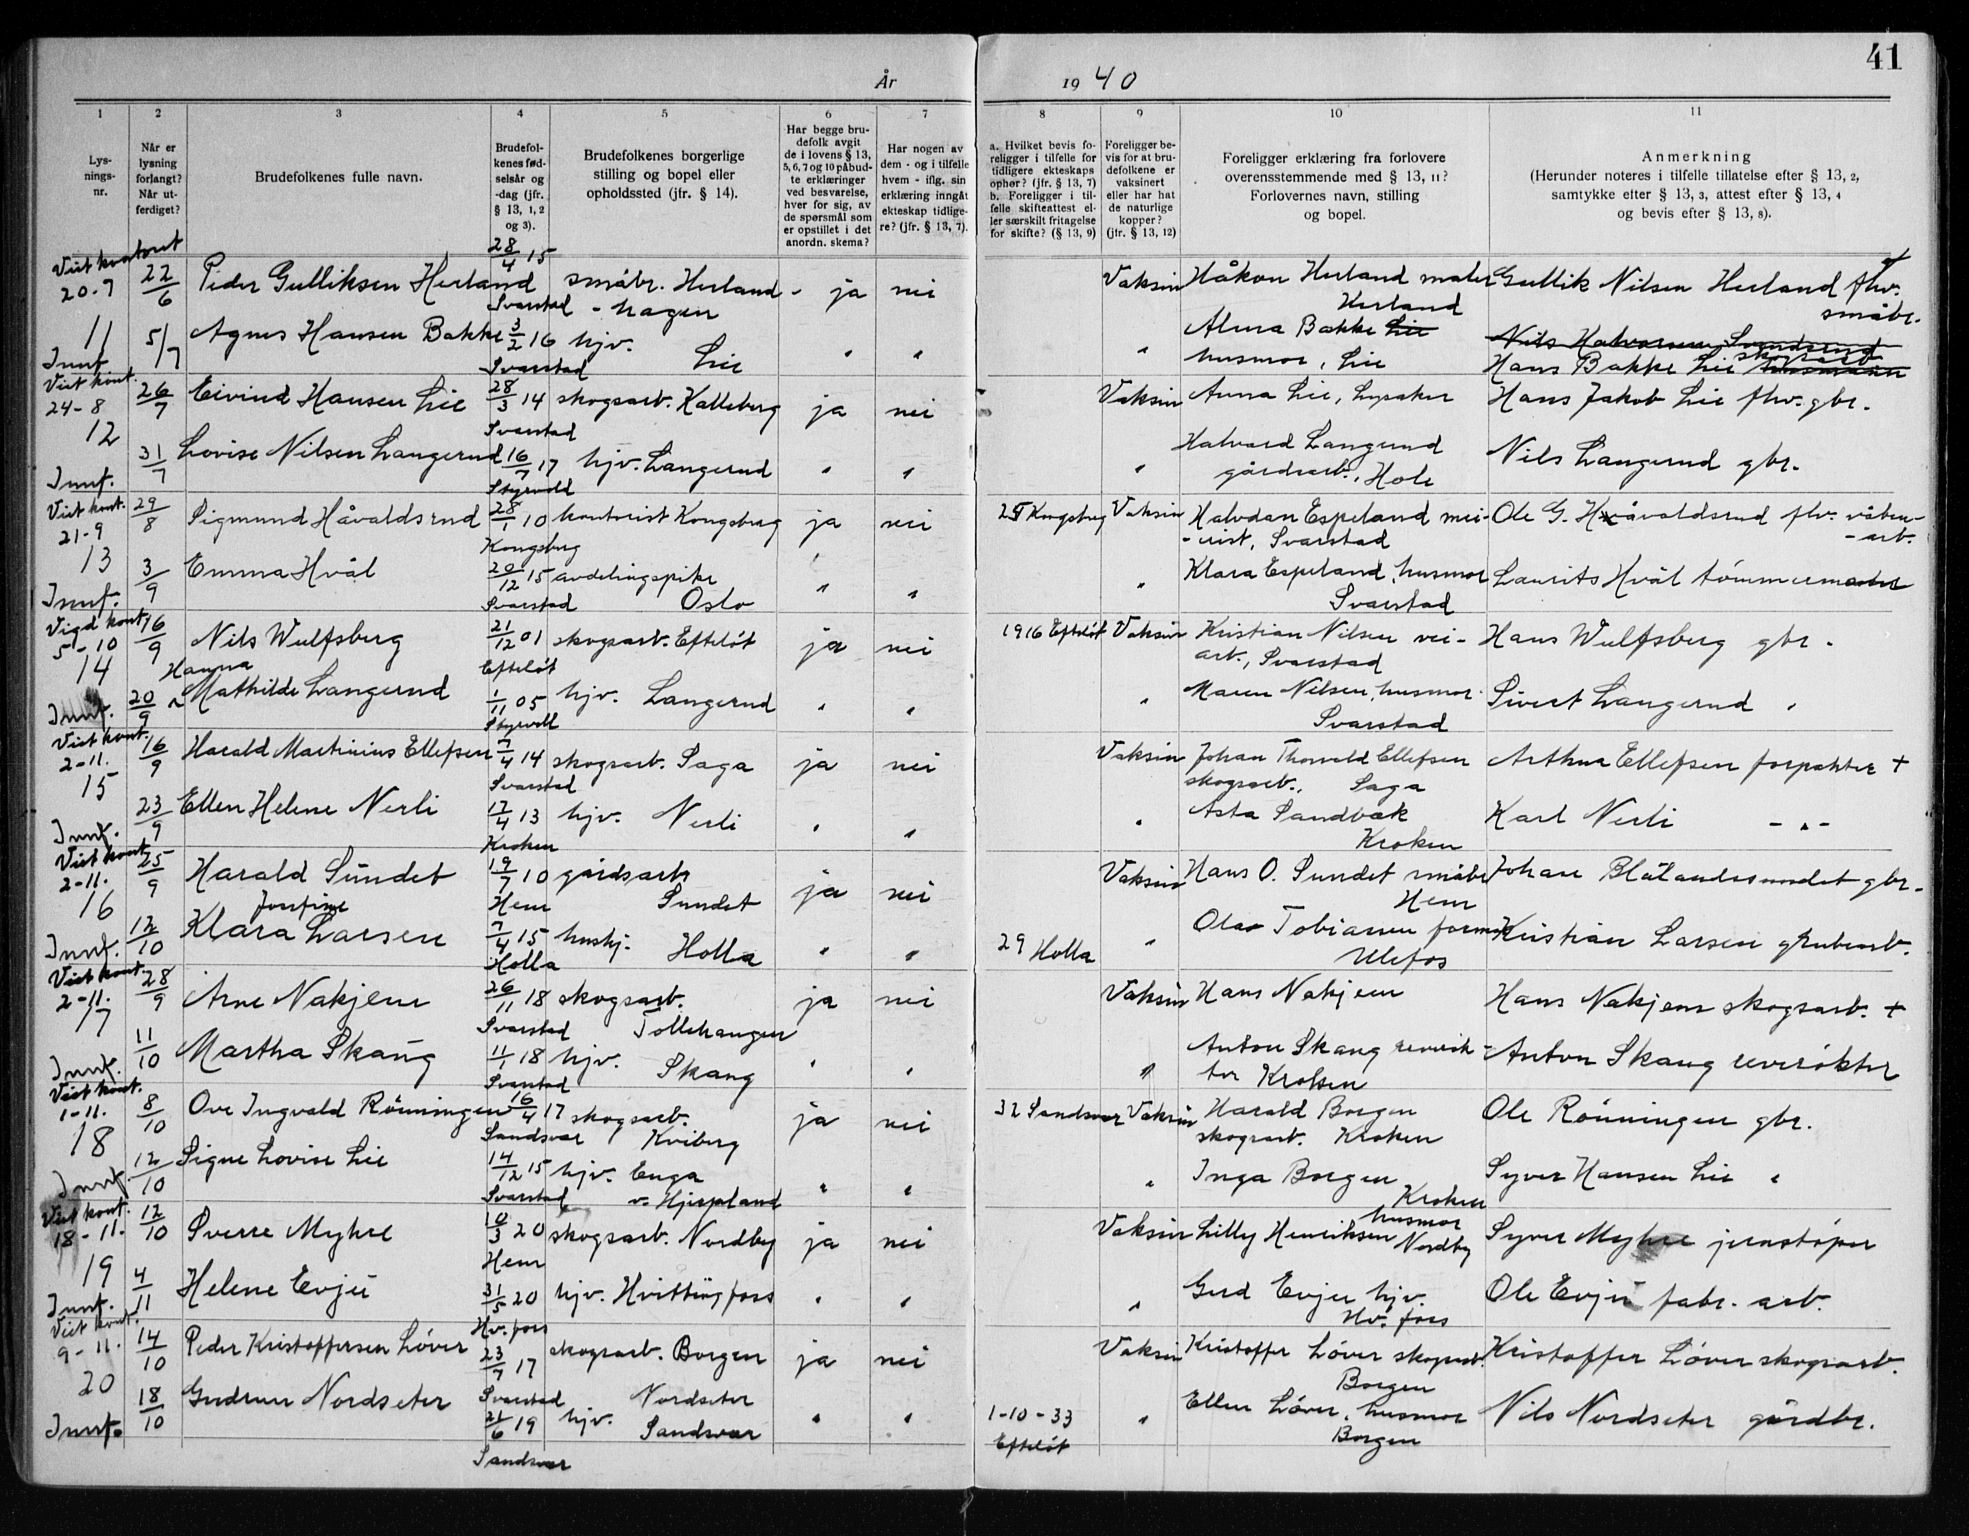 41
År 1940
1 2 3 4 5 6 7 8 9 10 11
Lys-
nings-
nr.
Når er
lysning
forlangt?
Når ut-
ferdiget?
Brudefolkenes fulle navn.
Brudefol-
kenes fød-
selsår og
-dag (jfr.
§ 13, 1, 2
og 3).
Brudefolkenes borgerlige
stilling og bopel eller
opholdssted (jfr. § 14).
Har begge bru-
defolk avgit
de i lovens § 13,
5, 6, 7 og 10 påbud-
te erklæringer
ved besvarelse,
hver for sig, av
de spørsmål som
er opstillet i det
anordn. skema?
Har nogen av
dem - og i tilfelle
hvem - iflg. sin
erklæring inngåt
ekteskap tidlige-
re? (jfr. § 13, 7).
a. Hvilket bevis fo-
religger i tilfelle for
tidligere ekteskaps
ophør? (jfr. § 13, 7)
b. Foreligger i til-
felle skifteattest el-
ler særskilt fritagelse
for skifte? (§ 13, 9)
Foreligger be-
vis for at bru-
defolkene er
vaksinert
eller har hat
de naturlige
kopper?
(jfr. § 13, 12)
Foreligger erklæring fra forlovere
overensstemmende med § 13, 11?
Forlovernes navn, stilling
og bopel.
Anmerkning
(Herunder noteres i tilfelle tillatelse efter § 13, 2,
samtykke efter § 13, 3, attest efter § 13, 4
og bevis efter § 13, 8).
Viet kontort 20-7 22/6 Peder Gulliksen Herland 28/4 15 Svarstad småbr. Herland-
-hagen ja nei Vaksin Håkon Herland maler
Herland Gullik Nilsen Herland fhv. +
småbr.
11 Innf. 5/7 Agnes Hansen Bakke 3/2 16 Svarstad hjv.
Lie " " " Alma Bakke Lie
husmor, Lie Nils Halvorsen Svendsrud
Hans Bakke Lie skogsarb.
Viet kont. 24-8 26/7 Eivind Hansen Lie 28/3 14 Svarstad skogsarb. Kalleberg ja nei Vaksin Anna Lie, Lysaker Hans Jakob Lie fhv. gbr.
12 Innf. 31/7 Lovise Nilsen Langerud 16/7 17 Styrvold hjv. Langerud " " " Halvard Langerud
gårdsarb., Hole Nils Langerud gbr.
Viet kont. 21-9 29/8 Sigmund Håvaldsrud 28/1 10 Kongsberg kontorist Kongsberg ja nei 25 Kongsberg Vaksin Halvdan Espeland mei-
-erist, Svarstad Ole G. Håvaldsrud fhv. våben-
-arb.
13 Innf. 3/9 Emma Hvål 20/12 15 Svarstad avdelingspike
Oslo " " " Klara Espeland, husmor
Svarstad Laurits Hvål tømmermester
Vigd kont. 5-10 16/9 Nils Wulfsberg 21/12 01 Efteløt skogsarb. Efteløt ja nei 1916 Efteløt Vaksin Kristian Nilsen vei-
arb., Svarstad Hans Wulfsberg gbr.
14 Innf. 20/9 Hanna
Mathilde Langerud 1/11 05 Styrvoll hjv. Langerud " " " Maren Nilsen, husmor
Svarstad Sivert Langerud "
Viet kont. 2-11. 16/9 Harald Martinius Ellefsen 7/4 14 Svarstad skogsarb. Saga ja nei Vaksin Johan Thorvald Ellefsen
skogsarb., Saga Arthur Ellefsen forpakter +
15 Innf. 23/9 Ellen Helene Nerli 17/4 13 Kroken hjv. Nerli " " " Asta Sandbak
Kroken Karl Nerli - " -
Viet kont. 2-11. 25/9 Harald Sundet 19/7 10 Hem gårdsarb.
Sundet ja nei Vaksin Hans O. Sundet småbr
Hem Johan Blålandssundet gbr.
16 Innf. 12/10 Josefine
Klara Larsen 7/4 15 Holla hushj.
Holla " " 29 Holla " Olav Tobiassen former
Ulefos Kristian Larsen grubearb.
Viet kont. 2-11. 28/9 Arne Nakjem 26/11 18 Svarstad skogsarb.
Tollehaugen ja nei Vaksin Hans Nakjem Hans Nakjem skogsarb. +
17 Innf. 11/10 Martha Skaug 11/1 18 Svarstad hjv. Skaug " " " Anton Skaug reverøk-
ter Kroken Anton Skaug reverøkter
Viet kont. 1-11. 8/10 Ove Ingvald Rönningen 16/4 17 Sandsvær skogsarb.
Kviberg ja nei 32 Sandsvær Vaksin Harald Borgen
skogsarb. Kroken Ole Rönningen gbr.
18 Innf. 12/10 Signe Lovise Lie 14/12 15 Svarstad hjv. Enga
v. Hjerpland " " " Inga Borgen
Kroken Syver Hansen Lie "
Viet kont. 18-11. 12/10 Sverre Myhre 10/3 20 Hem skogsarb. Nordby ja nei Vaksin Lilly Henriksen husmor
Nordby Syver Myhre jernstøper
19 Innf. 4/11 Helene Evju 31/5 20 Hv. fors hjv. Hvittingfoss " " " Gud Evju hjv.
Hv. fors Ole Evju fabr. arb.
Viet kont. 9-11. 14/10 Peder Kristoffersen Løver 23/7 17 Svarstad skogsarb. Borgen ja nei Vaksin Kristoffer Løver skogsarb.
Borgen Kristoffer Løver skogsarb.
20 Innf. 18/10 Gudrun Nordseter 21/6 19 Sandsvær hjv. Nordseter
Sandsvær " " 1-10-33
Efteløt " Ellen Løver, husmor
Borgen Nils Nordseter gårdbr.